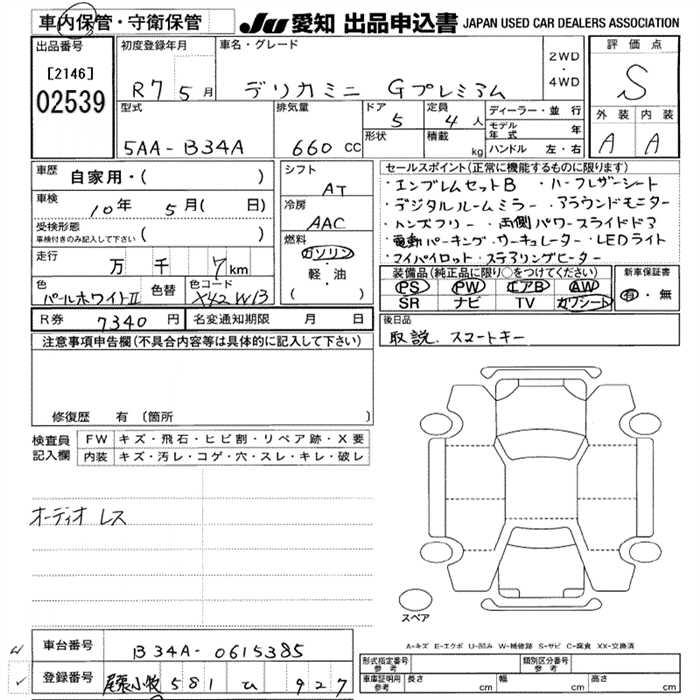 車内保管・守衛保管
JU 愛知 出品申込書 JAPAN USED CAR DEALERS ASSOCIATION
出品番号
[2146]
02539
初度登録年月
R7 5月
車名・グレード
デリカミニ Gプレミアム
2WD
・
4WD
評価点
S
外装 内装
A A
型式
5AA-B34A
排気量
660 CC
ドア
5
形状
定員
4人
積載
kg
ディーラー・並行
モデル年式 年
ハンドル 左・右
車歴
自家用・( )
車検
10年 5月( 日)
受検形態
車検付きのみ記入して下さい ( )
走行
万 千 7km
色
パールホワイトII
色替
色コード
X42 W13
シフト
AT
冷房
AAC
燃料
ガソリン
・
軽・油
( )
セールスポイント(正常に機能するものに限ります)
・エンブレムセットB ・ハーフレザーシート
・デジタルルームミラー ・アラウンドモニター
・ハンズフリー ・両側パワースライドドア
・電動パーキング ・サーキュレーター ・LEDライト
・マイパイロット ・ステアリングヒーター
装備品(純正品に限り○をつけてください)
PS PW エアB AW
SR ナビ TV カワシート
新車保証書
有・無
R券 7340 円
名変通知期限 月 日
後日品
取説 スマートキー
注意事項申告欄(不具合内容等は具体的に記入して下さい)
修復歴 有 (箇所 )
検査員記入欄
FW キズ・飛石・ヒビ割・リペア跡・X要
内装 キズ・汚レ・コゲ・穴・スレ・キレ・破レ
オーディオレス
スペア
A-キズ E-エクボ U-凹み W-補修跡 S-サビ C-腐食 XX-交換済
車台番号 B34A-0615385
登録番号 尾張小牧 581 ひ 927
形式指定番号 参考
類別区分番号 参考
車庫証明用 参考 長さ cm 幅 cm 高さ cm